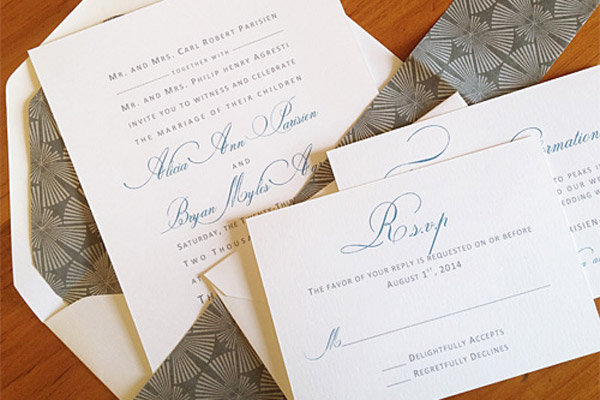 Mr. and Mrs. Carl Robert Parisien
together with
Mr. and Mrs. Philip Henry Agresti
invite you to witness and celebrate
the marriage of their children
Alicia Ann Parisien
and
Bryan Myles
Saturday, the
Two Thous
R.s.v.p
The favor of your reply is requested on or before
August 1st, 2014
M
Delightfully Accepts
Regretfully Declines